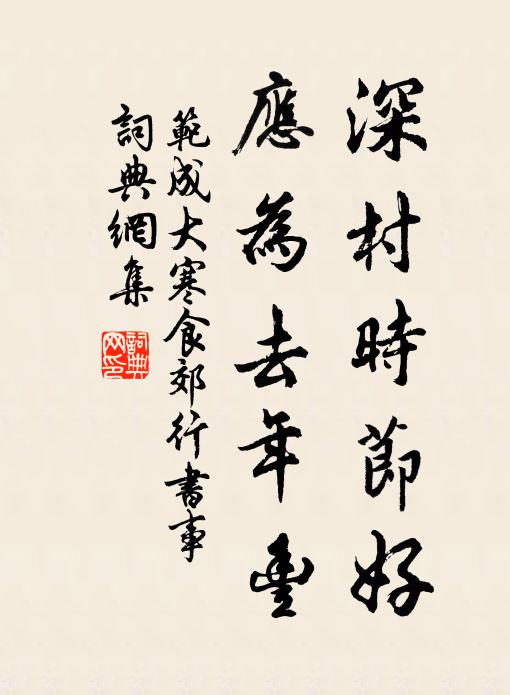 深村時節好
應為去年豐
範成大寒食郊行書事
詞典網集
詞典
网印